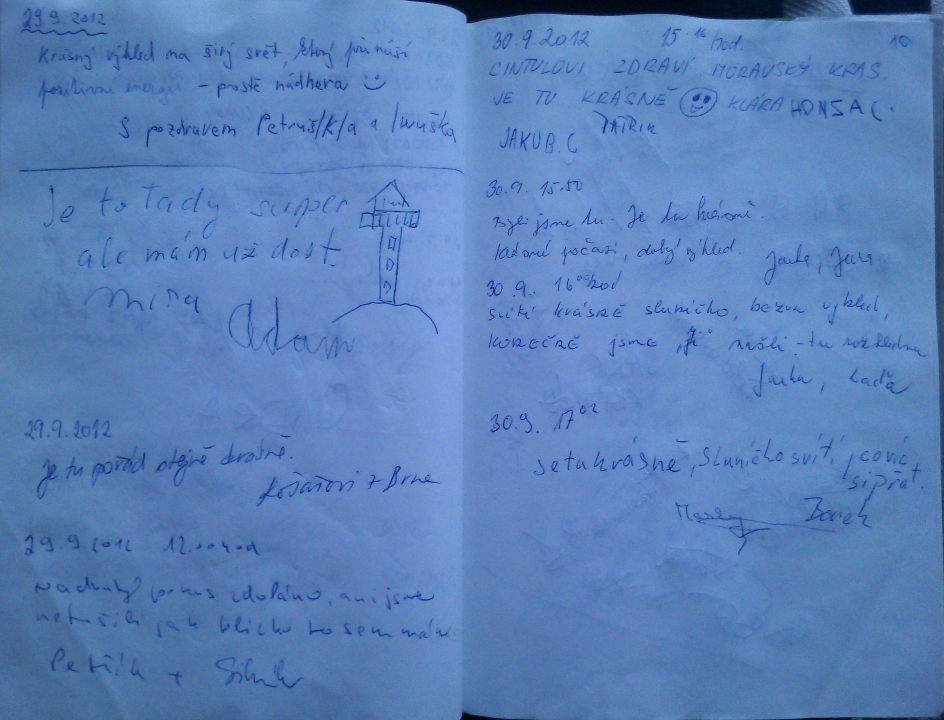 29.9.2012
Krásný výhled na širý svět, který přináší
pozitivní energii – prostě nádhera
S pozdravem Petruš/K/a a Ivuška
Je to tady supper
ale mám už dost.
Míra
Adam
29.9.2012
je tu pořád stejně krásně.
Košařovi z Brna
29.9.2012 12.00 hod
Na druhý pokus zdoláno, ani jsme
netušili jak blízko to sem máme.
Petřík +
30.9.2012 15 16 hod.
10
CINTULOVI ZDRAVÍ MORAVSKÝ KRAS.
JE TU KRÁSNĚ KLÁRA HONZA C.
PATRIK
JAKUB. C
30.9. 15.50
Byli jsme tu. Je tu krásně.
počasí, dobrý výhled.
30.9. 16 00 hod
svítí krásně sluníčko, bezva výhled,
KONEČNĚ jsme ji našli – tu rozhlednu
Jarka, Laďa
30.9. 17 02
Je tu krásně, sluníčko svítí, covíc
si přát.
Borek